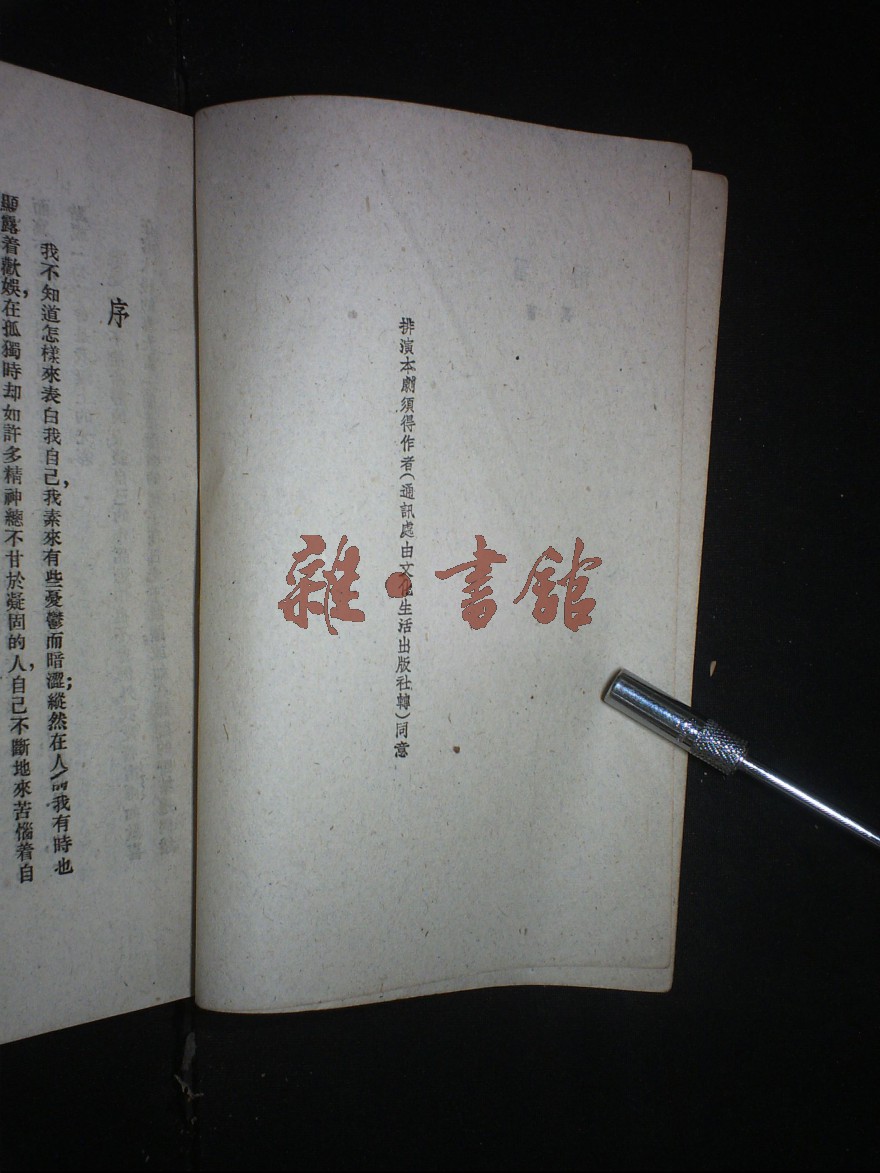 排演本劇須得作者(通訊處由文化生活出版社轉)同意
序
我不知道怎樣來表白我自己,我素來有些憂鬱而暗澀;縱然在人前我有時也
顯露着歡娛,在孤獨時却如許多精神總不甘於凝固的人,自己不斷地來苦惱着自
雜·書館